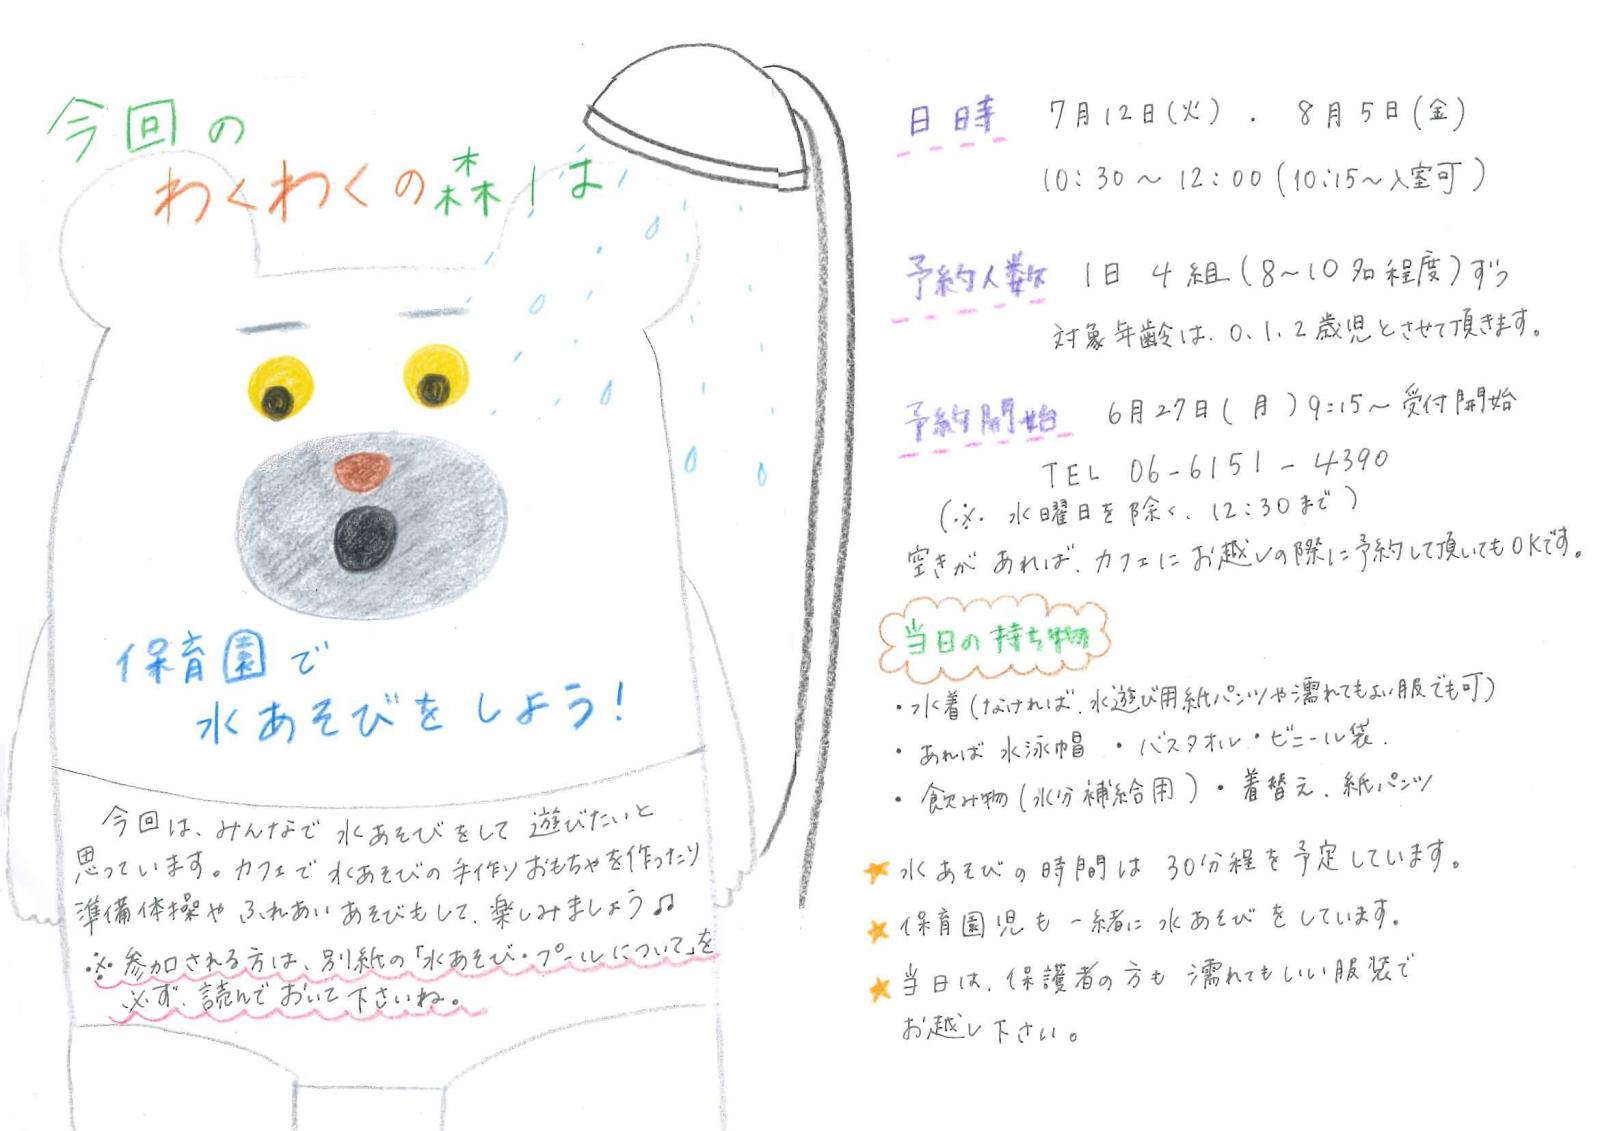 今回の
わくわくの森!は
保育園で
水あそびをしよう!
今回は、みんなで水あそびをして遊びたいと
思っています。カフェで水あそびの手作りおもちゃを作ったり
準備体操やふれあいあそびもして、楽しみましょう♫
※参加される方は、別紙の「水あそび・プールについて」を
必ず、読んでおいて下さいね。
日時 7月12日(火). 8月5日(金)
10:30〜12:00(10:15〜入室可)
予約人数 1日4組(8〜10名程度)ずつ
対象年齢は、0.1.2歳児とさせて頂きます。
予約開始 6月27日(月)9:15〜受付開始
TEL 06-6151-4390
(※水曜日を除く、12:30まで)
空きがあれば、カフェにお越しの際に予約して頂いてもOKです。
当日の持ち物
・水着(なければ、水遊び用紙パンツや濡れてもよい服でも可)
・あれば水泳帽 ・バスタオル・ビニール袋.
・飲み物(水分補給用)・着替え、紙パンツ
★水あそびの時間は30分程を予定しています。
★保育園児も一緒に水あそびをしています。
★当日は、保護者の方も濡れてもいい服装で
お越し下さい。